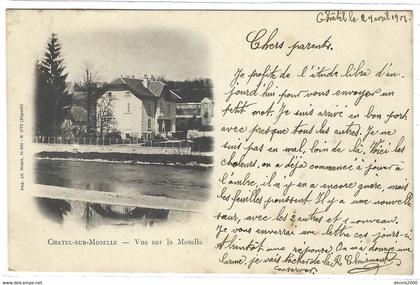 Châtel le 29 avril 190
Chers parents.
Je profite de l'étude libre d'au-
jourd'hui pour vous envoyer un
petit mot. Je suis arrivé en bon port
avec presque tous les autres. Je ne
suis pas en mal, loin de là. Voici les
chaleurs, on a déjà commencé à jouer à
l'ombre, il n'y en a encore guère, mais
les feuilles poussent. Il y a une nouvelle
sœur, avec les 2 autres et 1 nouveau.
Je vous enverrai un lettre après ci
Attends une réponse. On m'a donné une
larme, je vais tâcher de la
conserver.
CHATEL-SUR-MOSELLE — Vue sur la Moselle
Imp. Ad. Weick, St-Dié - N° 975 (Déposé)
delcampe.net
dennis2000